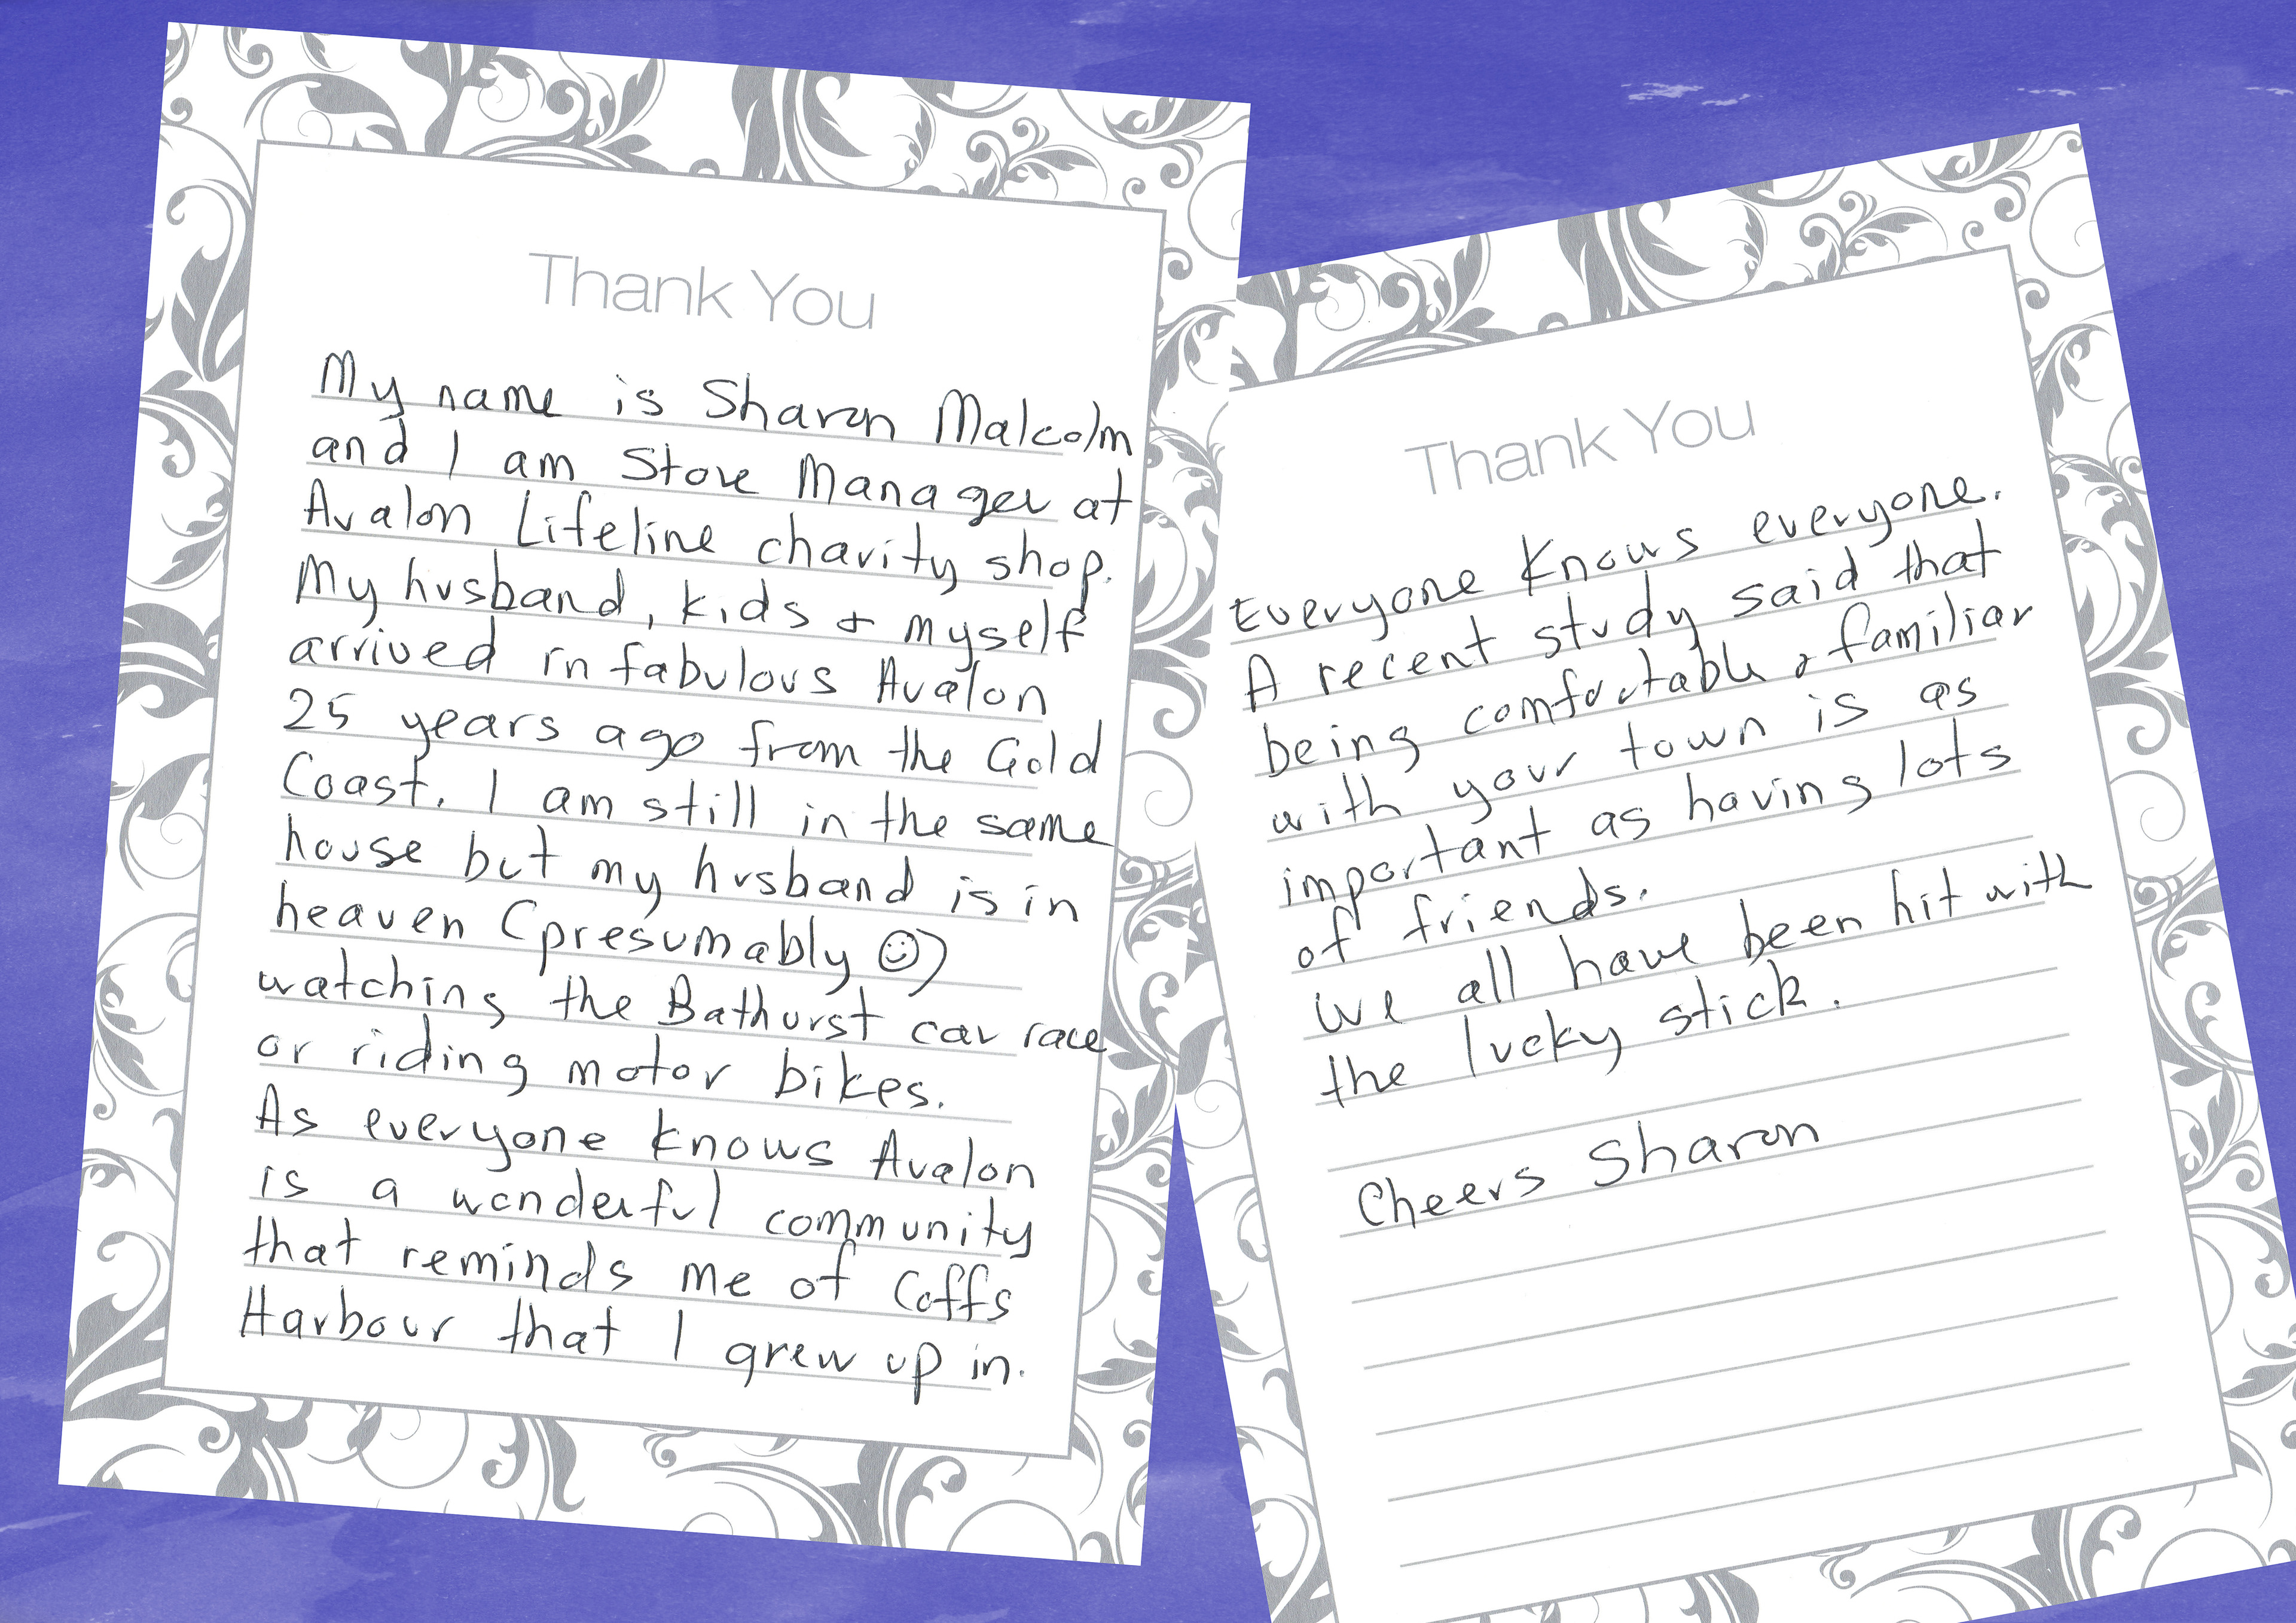 Thank You
My name is Sharon Malcolm
and I am Store Manager at
Avalon Lifeline charity shop.
My husband, kids + myself
arrived in fabulous Avalon
25 years ago from the Gold
Coast. I am still in the same
house but my husband is in
heaven (presumably ☺)
watching the Bathurst car race
or riding motor bikes.
As everyone knows Avalon
is a wonderful community
that reminds me of Coffs
Harbour that I grew up in.
Thank You
Everyone knows everyone.
A recent study said that
being comfortable + familiar
with your town is as
important as having lots
of friends.
We all have been hit with
the lucky stick.
Cheers Sharon